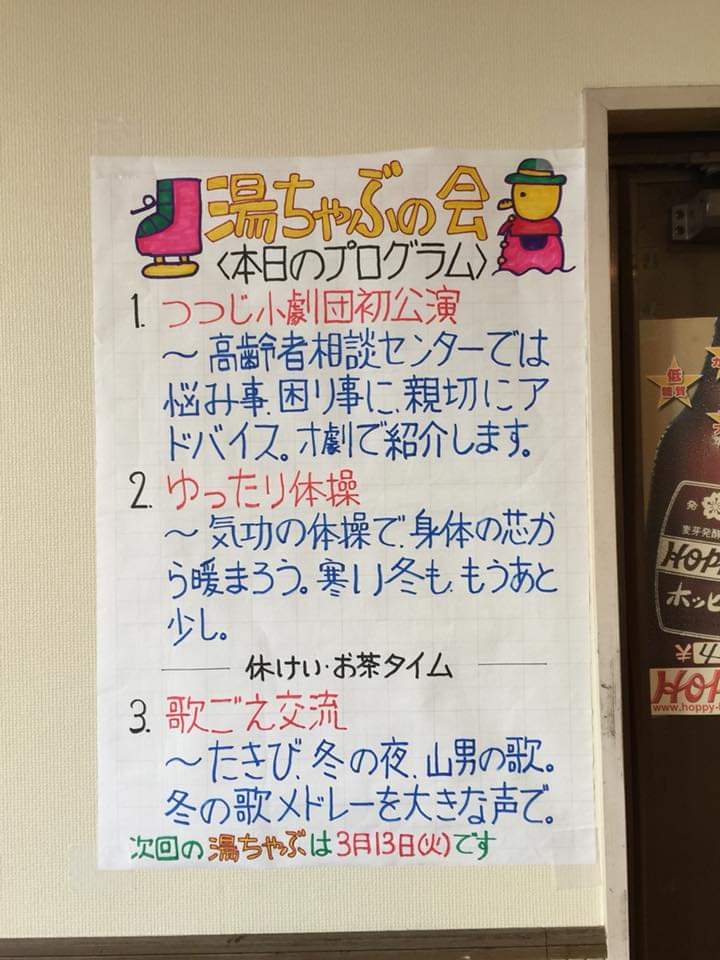 湯ちゃぶの会
〈本日のプログラム〉
1. つつじ小劇団初公演
～高齢者相談センターでは
悩み事、困り事に、親切にア
ドバイス。寸劇で紹介します。
2. ゆったり体操
～気功の体操で、身体の芯か
ら暖まろう。寒い冬も、もうあと
少し。
休けい・お茶タイム
3. 歌ごえ交流
～たきび、冬の夜、山男の歌。
冬の歌メドレーを大きな声で。
次回の湯ちゃぶは3月13日(火)です
低
糖質
発
麦芽発酵
HOPP
ホッピ
¥
HOP
www.hoppy-